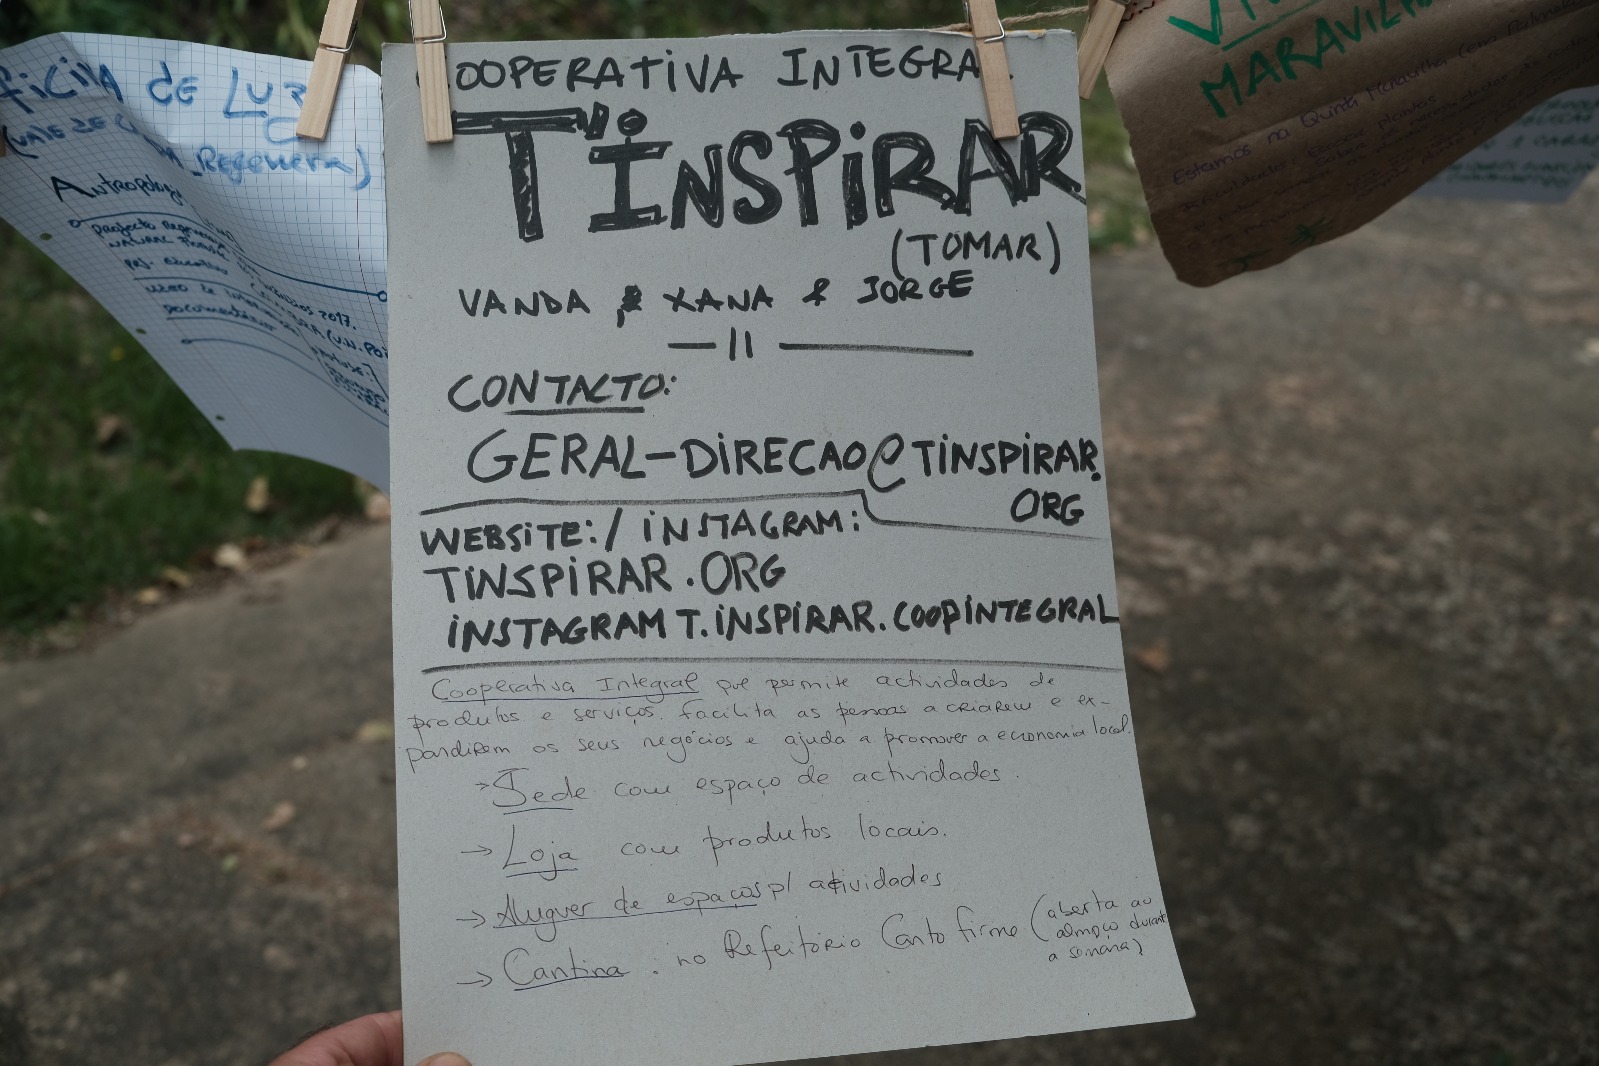 COOPERATIVA INTEGRAL
T'INSPIRAR
(TOMAR)
VANDA & XANA & JORGE
—||———
CONTACTO:
GERAL-DIRECAO@TINSPIRAR.
ORG
WEBSITE:/ INSTAGRAM:
TINSPIRAR.ORG
INSTAGRAM T.INSPIRAR.COOPINTEGRAL
Cooperativa Integral que permite actividades de
produtos e serviços. facilita as pessoas a criarem e ex-
pandirem os seus negócios e ajuda a promover a economia local.
→ Sede com espaço de actividades.
→ Loja com produtos locais.
→ Aluguer de espaços p/ actividades
→ Cantina : no Refeitório Canto firme (aberta ao
almoço durante
a semana)
OFICINA de LUZ
Regenera)
Antropologia
projecto
2017.
MARAVILHA
Estamos na Quinta Maravilha